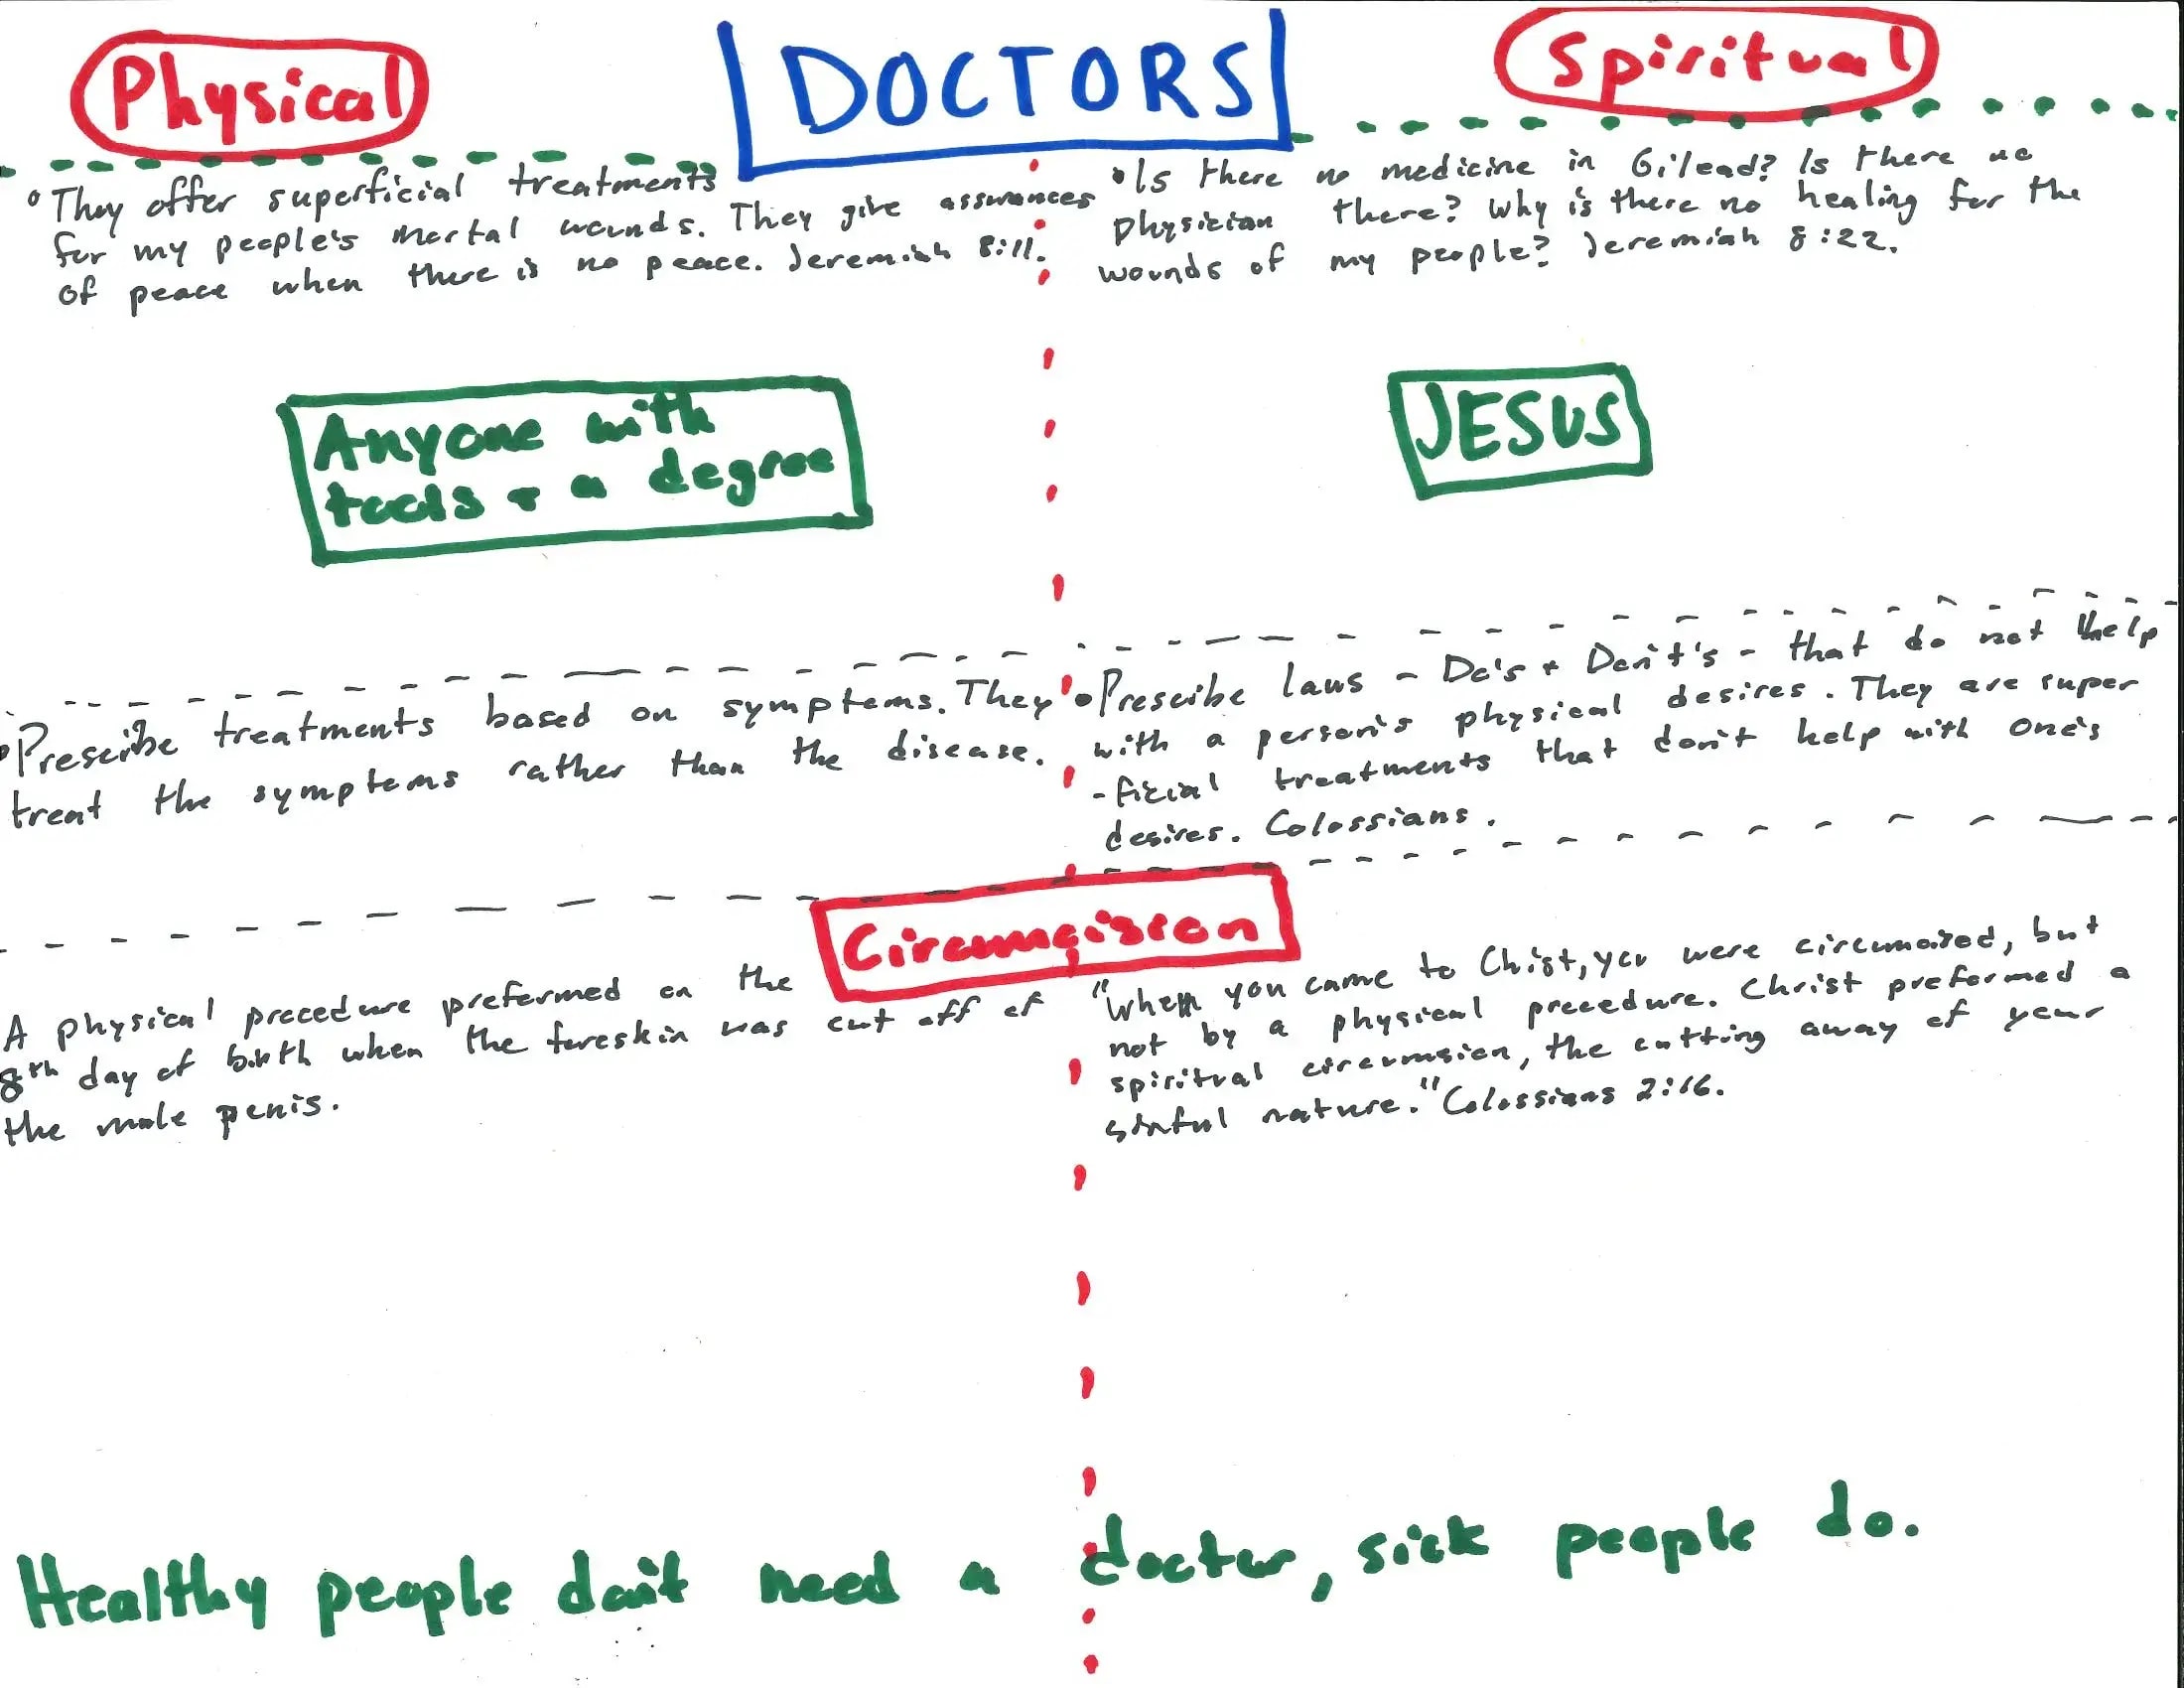 Physical
DOCTORS
Spiritual
They offer superficial treatments
for my people's mortal wounds. They give assurances
of peace when there is no peace. Jeremiah 8:11.
Is there no medicine in Gilead? Is there no
physician there? Why is there no healing for the
wounds of my people? Jeremiah 8:22.
Anyone with
tools + a degree
JESUS
Prescribe treatments based on symptoms. They
treat the symptoms rather than the disease.
Prescribe laws - Do's + Don't's - that do not help
with a person's physical desires. They are super
-ficial treatments that don't help with one's
desires. Colossians.
Circumcision
A physical procedure preformed on the
8th day of birth when the foreskin was cut off of
the male penis.
"When you came to Chist, you were circumcised, but
not by a physical procedure. Christ preformed a
spiritual circumsion, the cutting away of your
sinful nature." Colossians 2:16.
Healthy people don't need a doctor, sick people do.